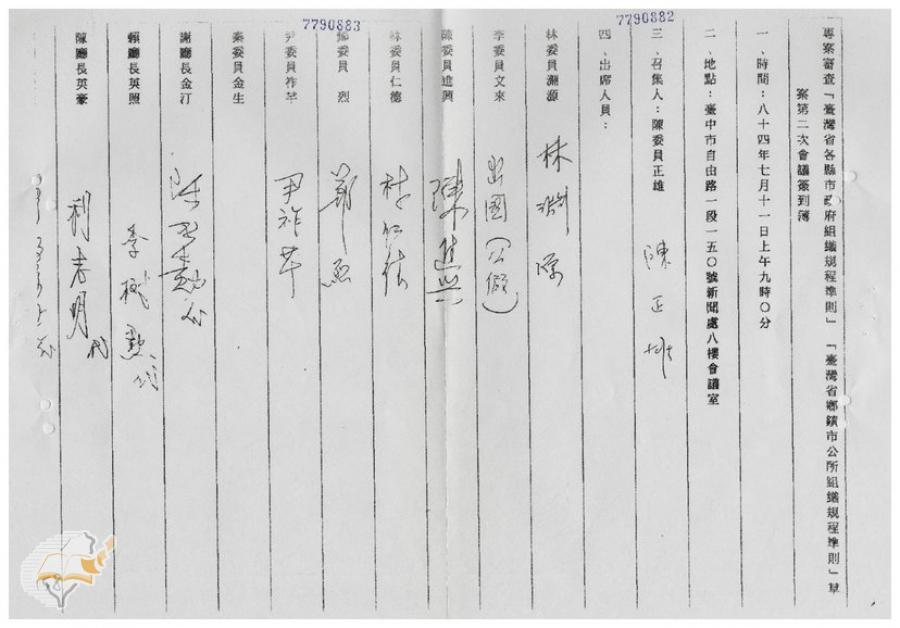 7790882
7790883
專案審查「臺灣省各縣市政府組織規程準則」「臺灣省鄉鎮市公所組織規程準則」草
案第二次會議簽到簿
一、時間：八十四年七月十一日上午九時〇分
二、地點：臺中市自由路一段一五〇號新聞處八樓會議室
三、召集人：陳委員正雄 陳正雄
四、出席人員：
林委員淵源 林淵源
李委員文來 出國（公假）
陳委員進興 陳進興
林委員仁德 林仁德
鄭委員 烈 鄭烈
尹委員祚芊 尹祚芊
秦委員金生
謝廳長金汀
賴廳長英照 李
陳廳長英豪 利吉明代